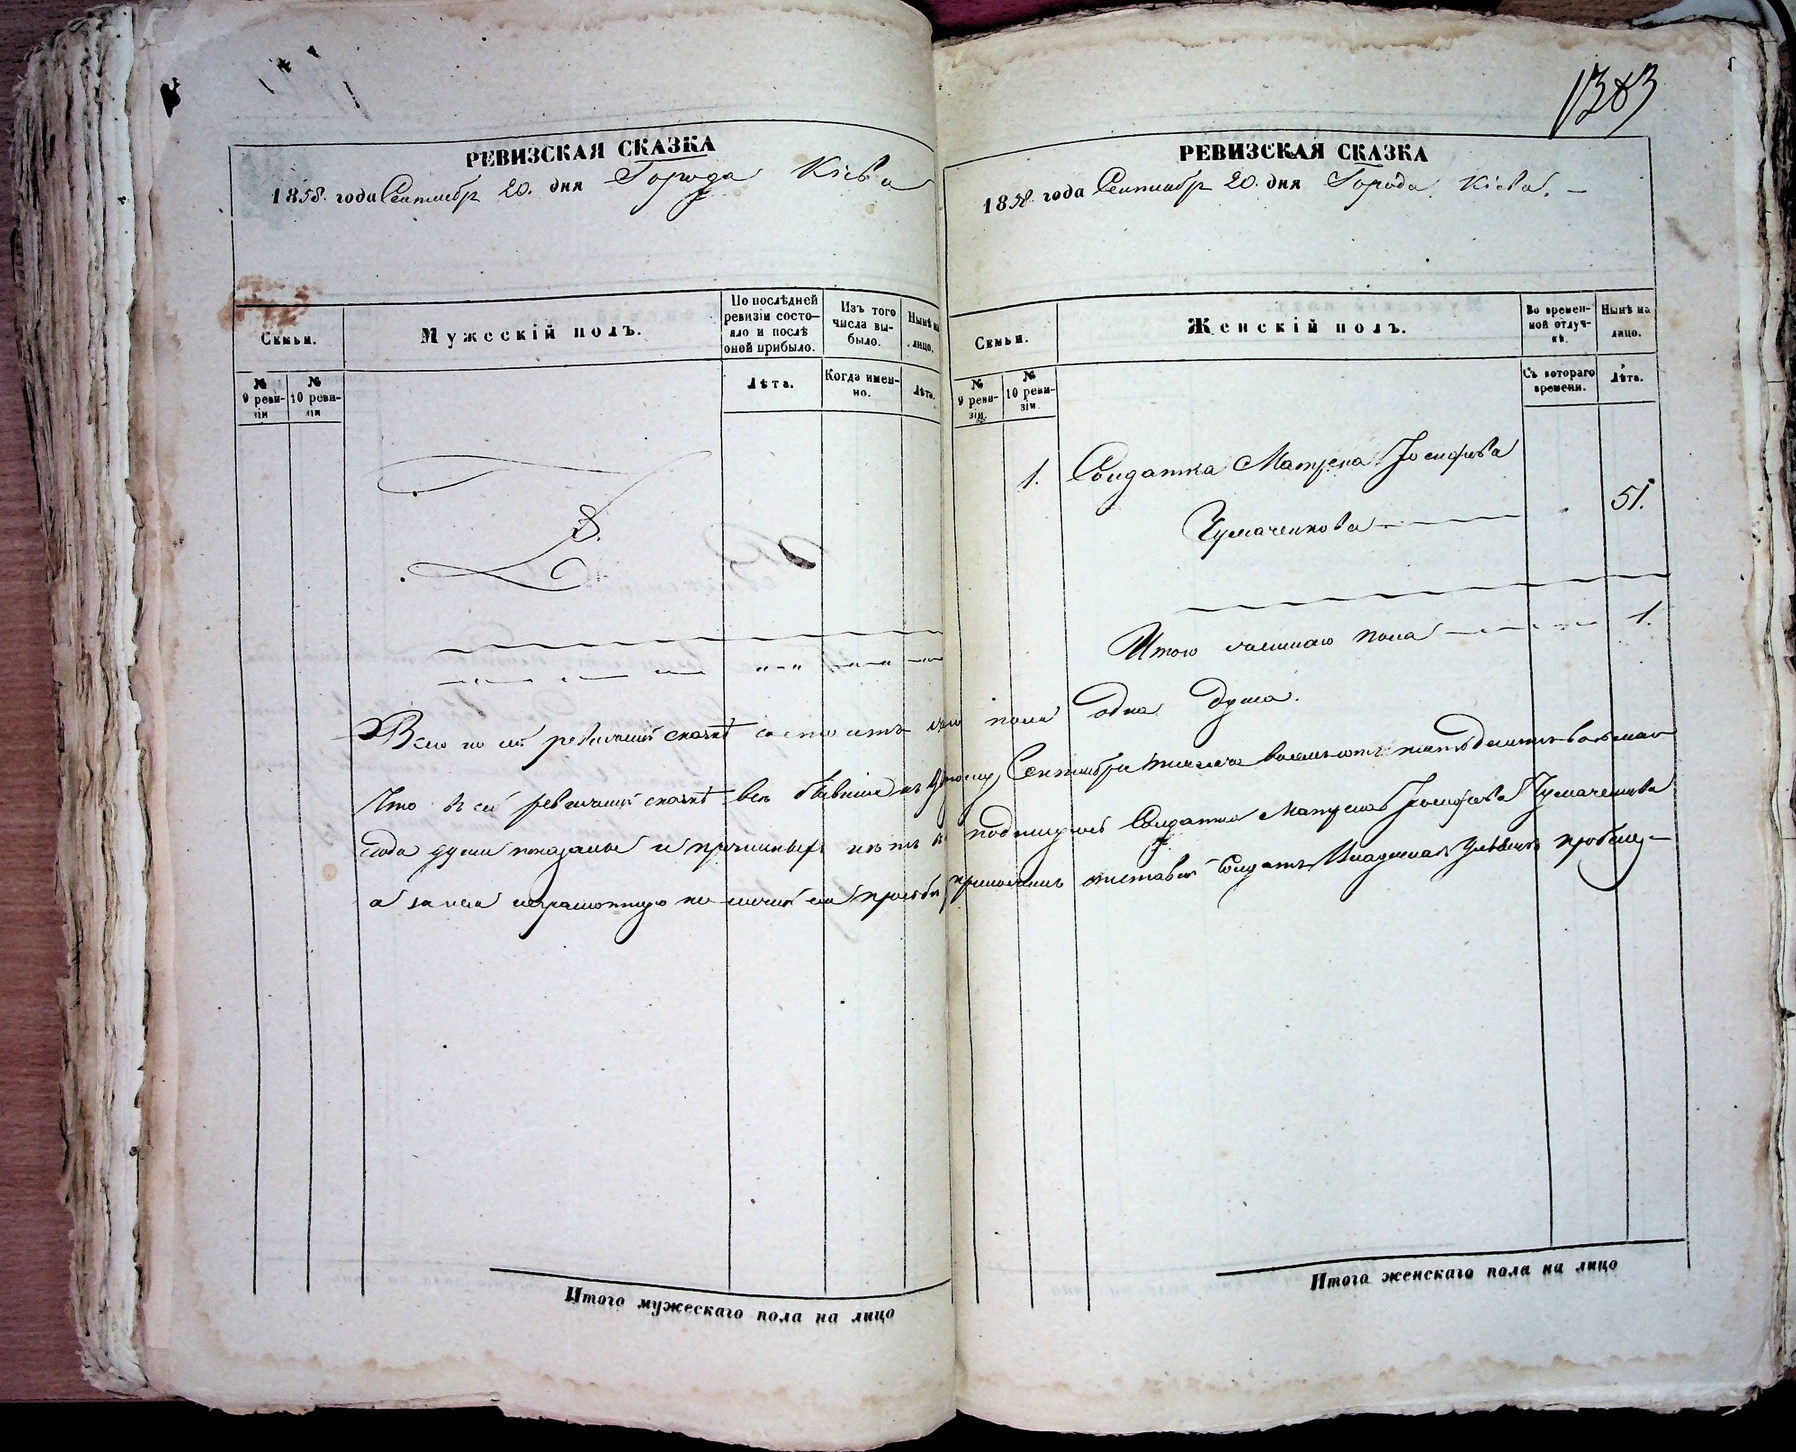 1383
РЕВИЗСКАЯ СКАЗКА
1858. года Сентябр 20. дня Города Кіева
Семьи.
Мужескій полъ.
По послѣдней ревизіи состо-
яло и послѣ
оной прибыло.
Изъ того
числа вы-
было.
Нынѣ на
лицо.
№
9 реви-
зіи
№
10 реви-
зіи
Лѣта.
Когда имен-
но.
Лѣта.
РЕВИЗСКАЯ СКАЗКА
1858. года Сентябр 20. дня Города Кіева. –
Семьи.
Женскій полъ.
Во времен-
ной отлуч-
кѣ.
Нынѣ на
лицо.
№
9 реви-
зіи.
№
10 реви-
зіи.
Съ котораго
времени.
Лѣта.
1. Солдатка Матрена Іосифова
Чумаченкова 51.
Итого пола 1.
Всего по сей ревизской сказкѣ состоитъ пола одна душа.
Что в сей ревизской сказкѣ все бывшіе Сентября тысяча восемьсотъ пятьдесятъ восьмаго
года души показаны и прописныхъ нѣтъ в Солдатка Матрена Іосифова Чумаченкова
а за нея неграмотную по личной ея просьбѣ отставной Солдатъ
Итого мужескаго пола на лицо
Итого женскаго пола на лицо